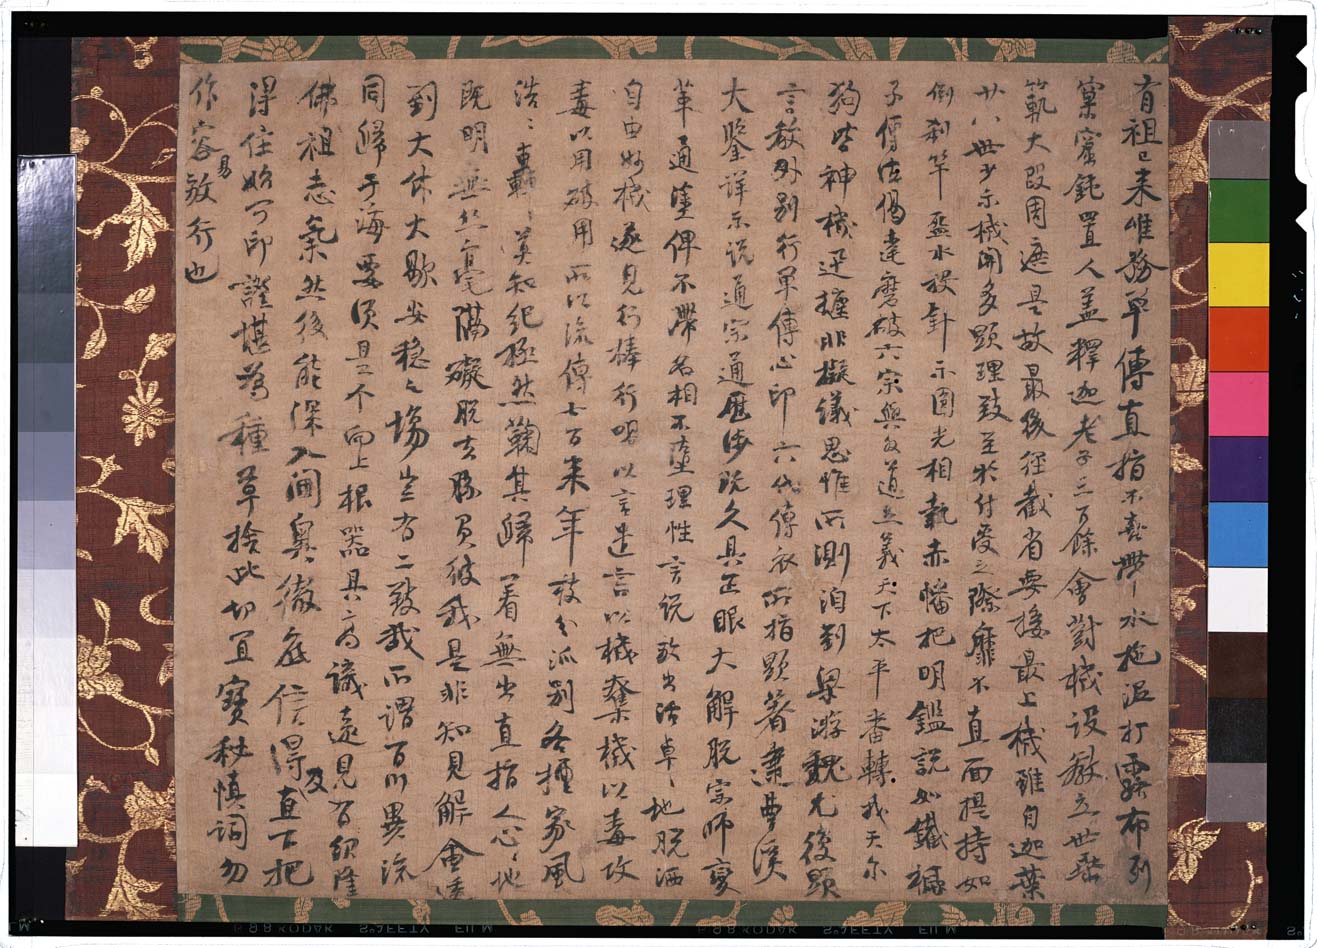 有祖已来唯務単傳直指不喜帶水拖泥打露布列
窠窟鈍置人蓋釋迦老子三百餘會對機設教立世垂
範大段周遮是故最後徑截省要接最上機雖自迦葉
廿八世少示機関多顕理致至於付受之際靡不直面提持如
倒刹竿盌水投針示圓光相執赤幡把明鑑説如鐵橛
子傳法偈達磨破六宗與外道立義天下太平番轉我天尓
狗皆神機迅捷非擬議思惟所測洎到梁游魏尤復顕
言教外別行単傳心印六代傳衣所指顯著逮曹溪
大鑒詳示説通宗通歴渉既久具正眼大解脱宗師変
革通塗俾不滯名相不墮理性言説放出活卓〻地脱洒
自由妙機遂見行棒行喝以言遣言以機奪機以毒攻
毒以用破用所以流傳七百来年枝分派別各擅家風
浩〻轟〻莫知紀極然鞠其歸著無出直指人心〻地
既明無絲毫隔礙脱去勝負彼我是非知見解會透
到大休大歇安穏之場豈有二致哉所謂百川異流
同歸于海要須是个向上根器具高識遠見有紹隆
佛祖志氣然後能深入閫奥徹底信得及直下把
得住始可印證堪為種草捨此切宜寳秘慎詞勿
作容易放行也